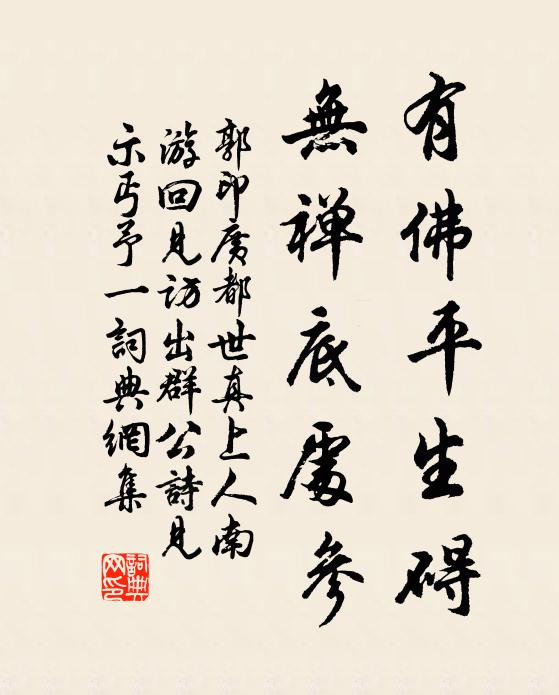 有佛平生碍
無禅底處參
郭印廣都世真上人南
游回見访出群公詩見
示丐予一詞典網集
詞典网印